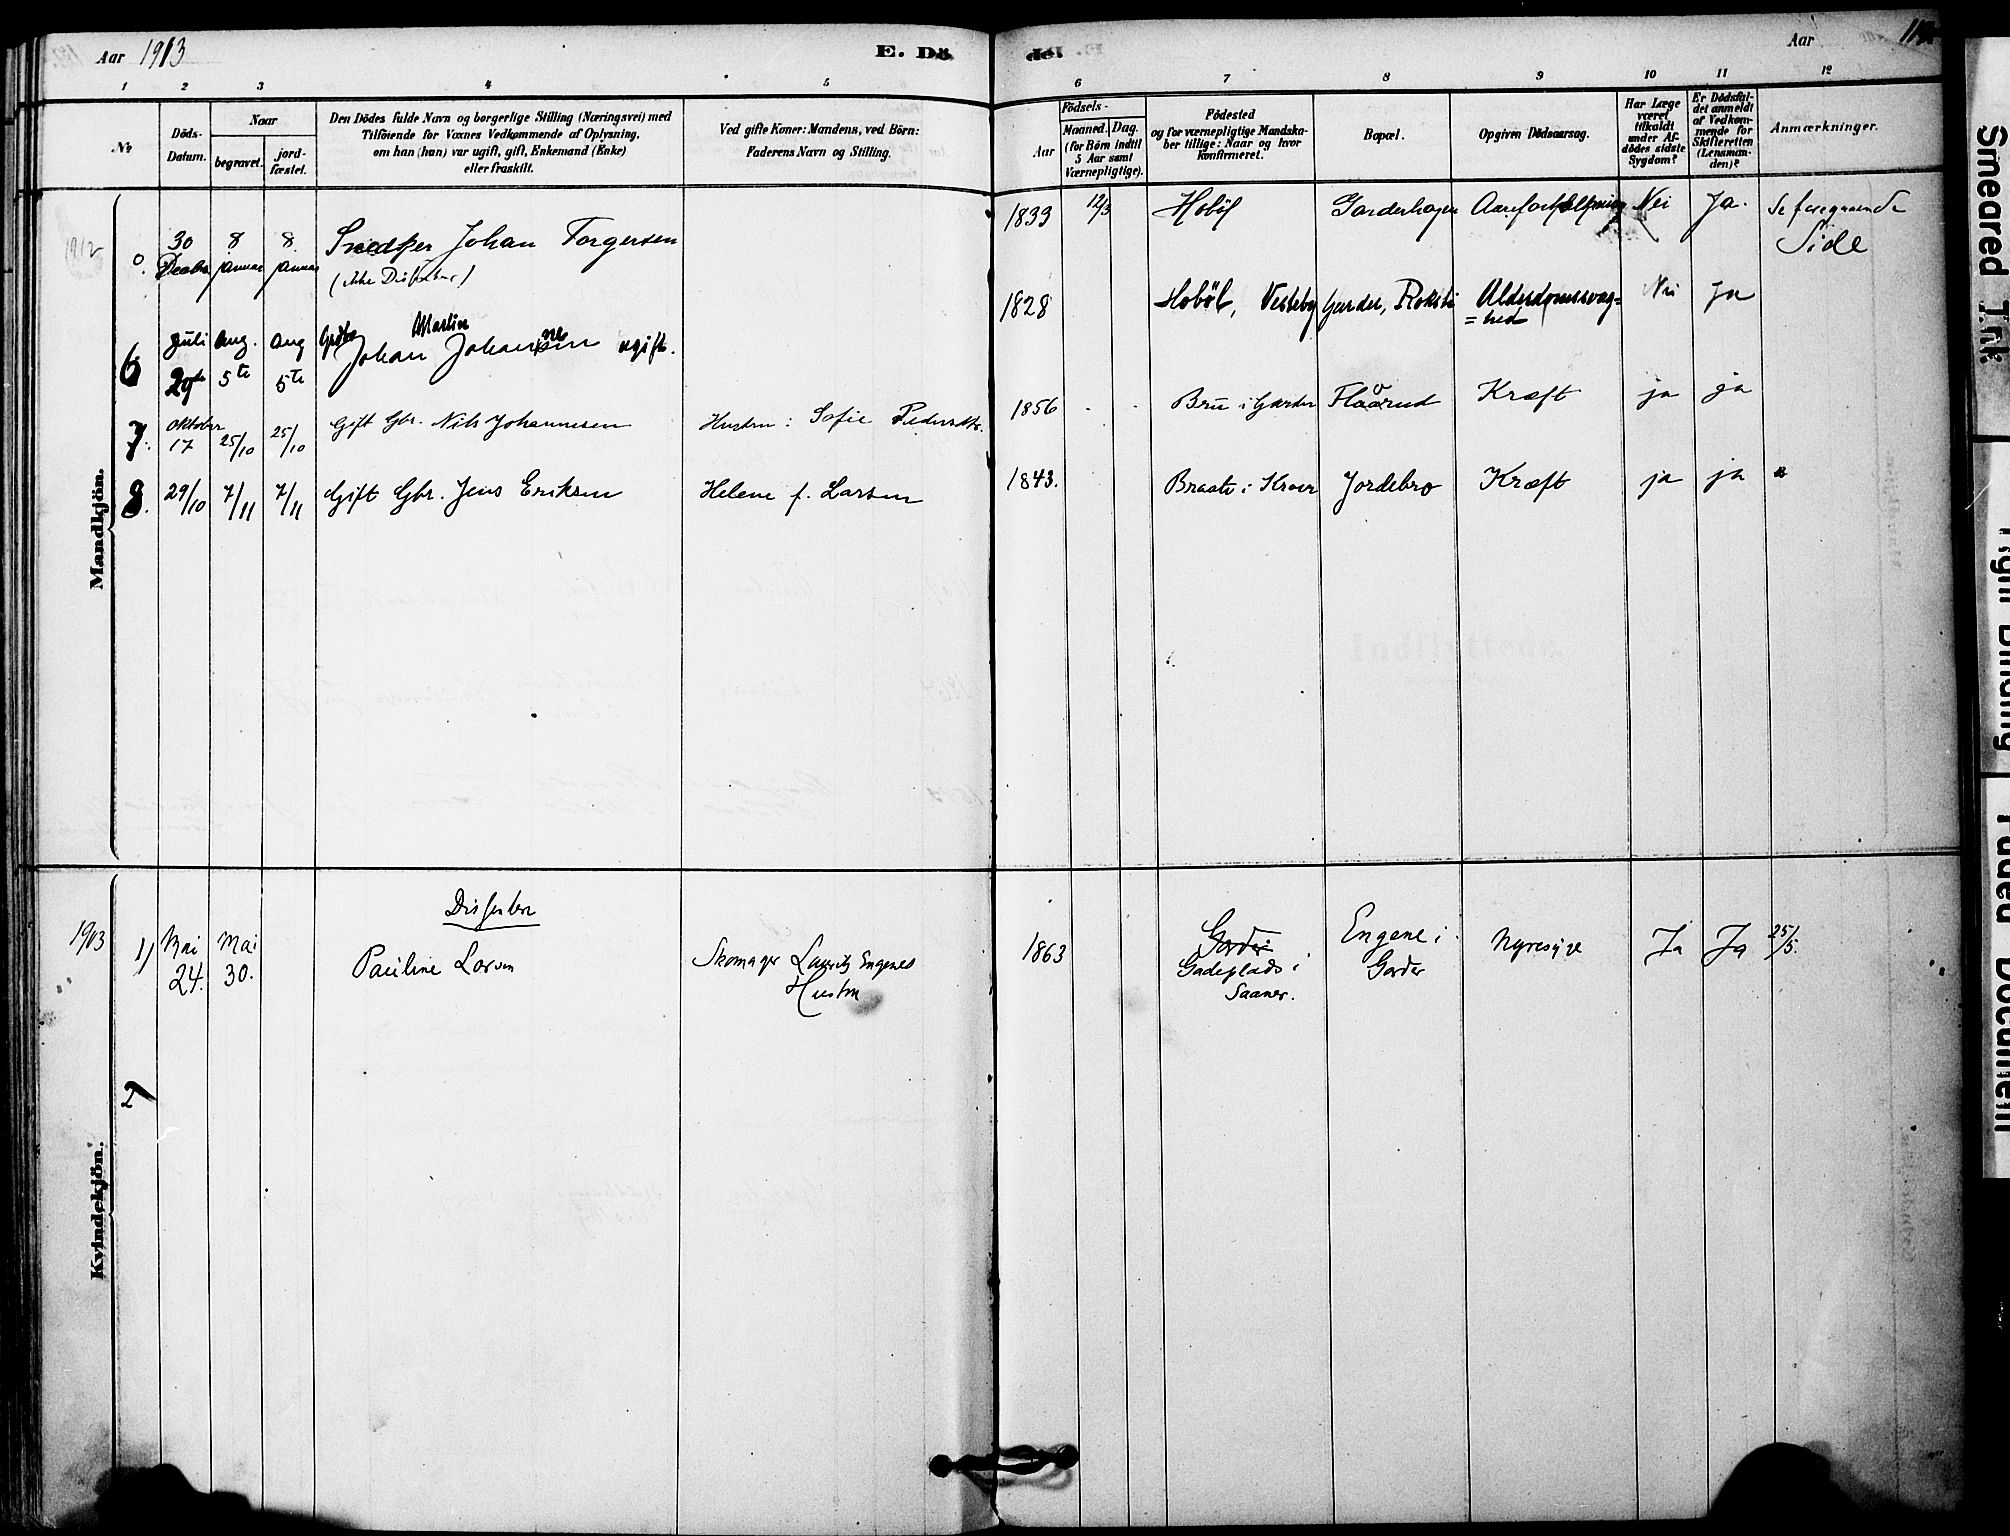 Aar 1913
E. Dö
de.
Aar
1 2 3 4 5 6 7 8 9 10 11 12
No
Döds-
Datum.
Naar
begravet.
jord-
fæstet.
Den Dödes fulde Navn og borgerlige Stilling (Næringsvei) med
Tilföiende for Voxnes Vedkommende af Oplysning,
om han (hun) var ugift, gift, Enkemand (Enke)
eller fraskilt.
Ved gifte Koner: Mandens, ved Börn:
Faderens Navn og Stilling.
Aar
Födsels-
Maaned. Dag.
(for Börn indtil
5 Aar samt
Værnepligtige).
Födested
og for værnepligtige Mandska-
ber tillige: Naar og hvor
konfirmeret.
Bopæl.
Opgiven Dödsaarsag.
Har Læge
været
tilkaldt
under Af-
dödes sidste
Sygdom?
Er Dödsfal-
det anmeldt
af Vedkom-
mende for
Skifteretten
(Lensman-
den)?
Anmærkninger.
Mandkjön.
1912
0. 30 Decbr 8 januar 8. januar Snedker Johan Torgersen
1833 12/3 Hobøl Garderhagen Aareforkalkning Nei Ja. Se foregaaende
Side
6 Juli 29de Aug. 5te Aug 5te Johan Martin Johansen ugift.
1828 Hobøl, Vestby Garder, Roksti Alderdomssvag=
=hed Nei Ja
7. Oktober 17 25/10 25/10 Gift Gbr. Nils Johannesen Hustru: Sofie Pedersdtr.
1856 Bru i Garder Flaarud Kræft ja ja
8. 29/10 7/11 7/11 Gift Gbr. Jens Eriksen Helene f. Larsen
1843. Braate i Kroer Jordebro Kræft ja ja
Kvindekjön.
Dissenter
1913 1) Mai 24. Mai 30. Pauline Larsen Skomager Lauritz Engenes
Hustru
1863 Garder
Gadeplads i
Saaner.
Engene i
Garder
Nyresyge Ja Ja 25/5.
2)
Smeared Ink
Tight Binding
Faded Document